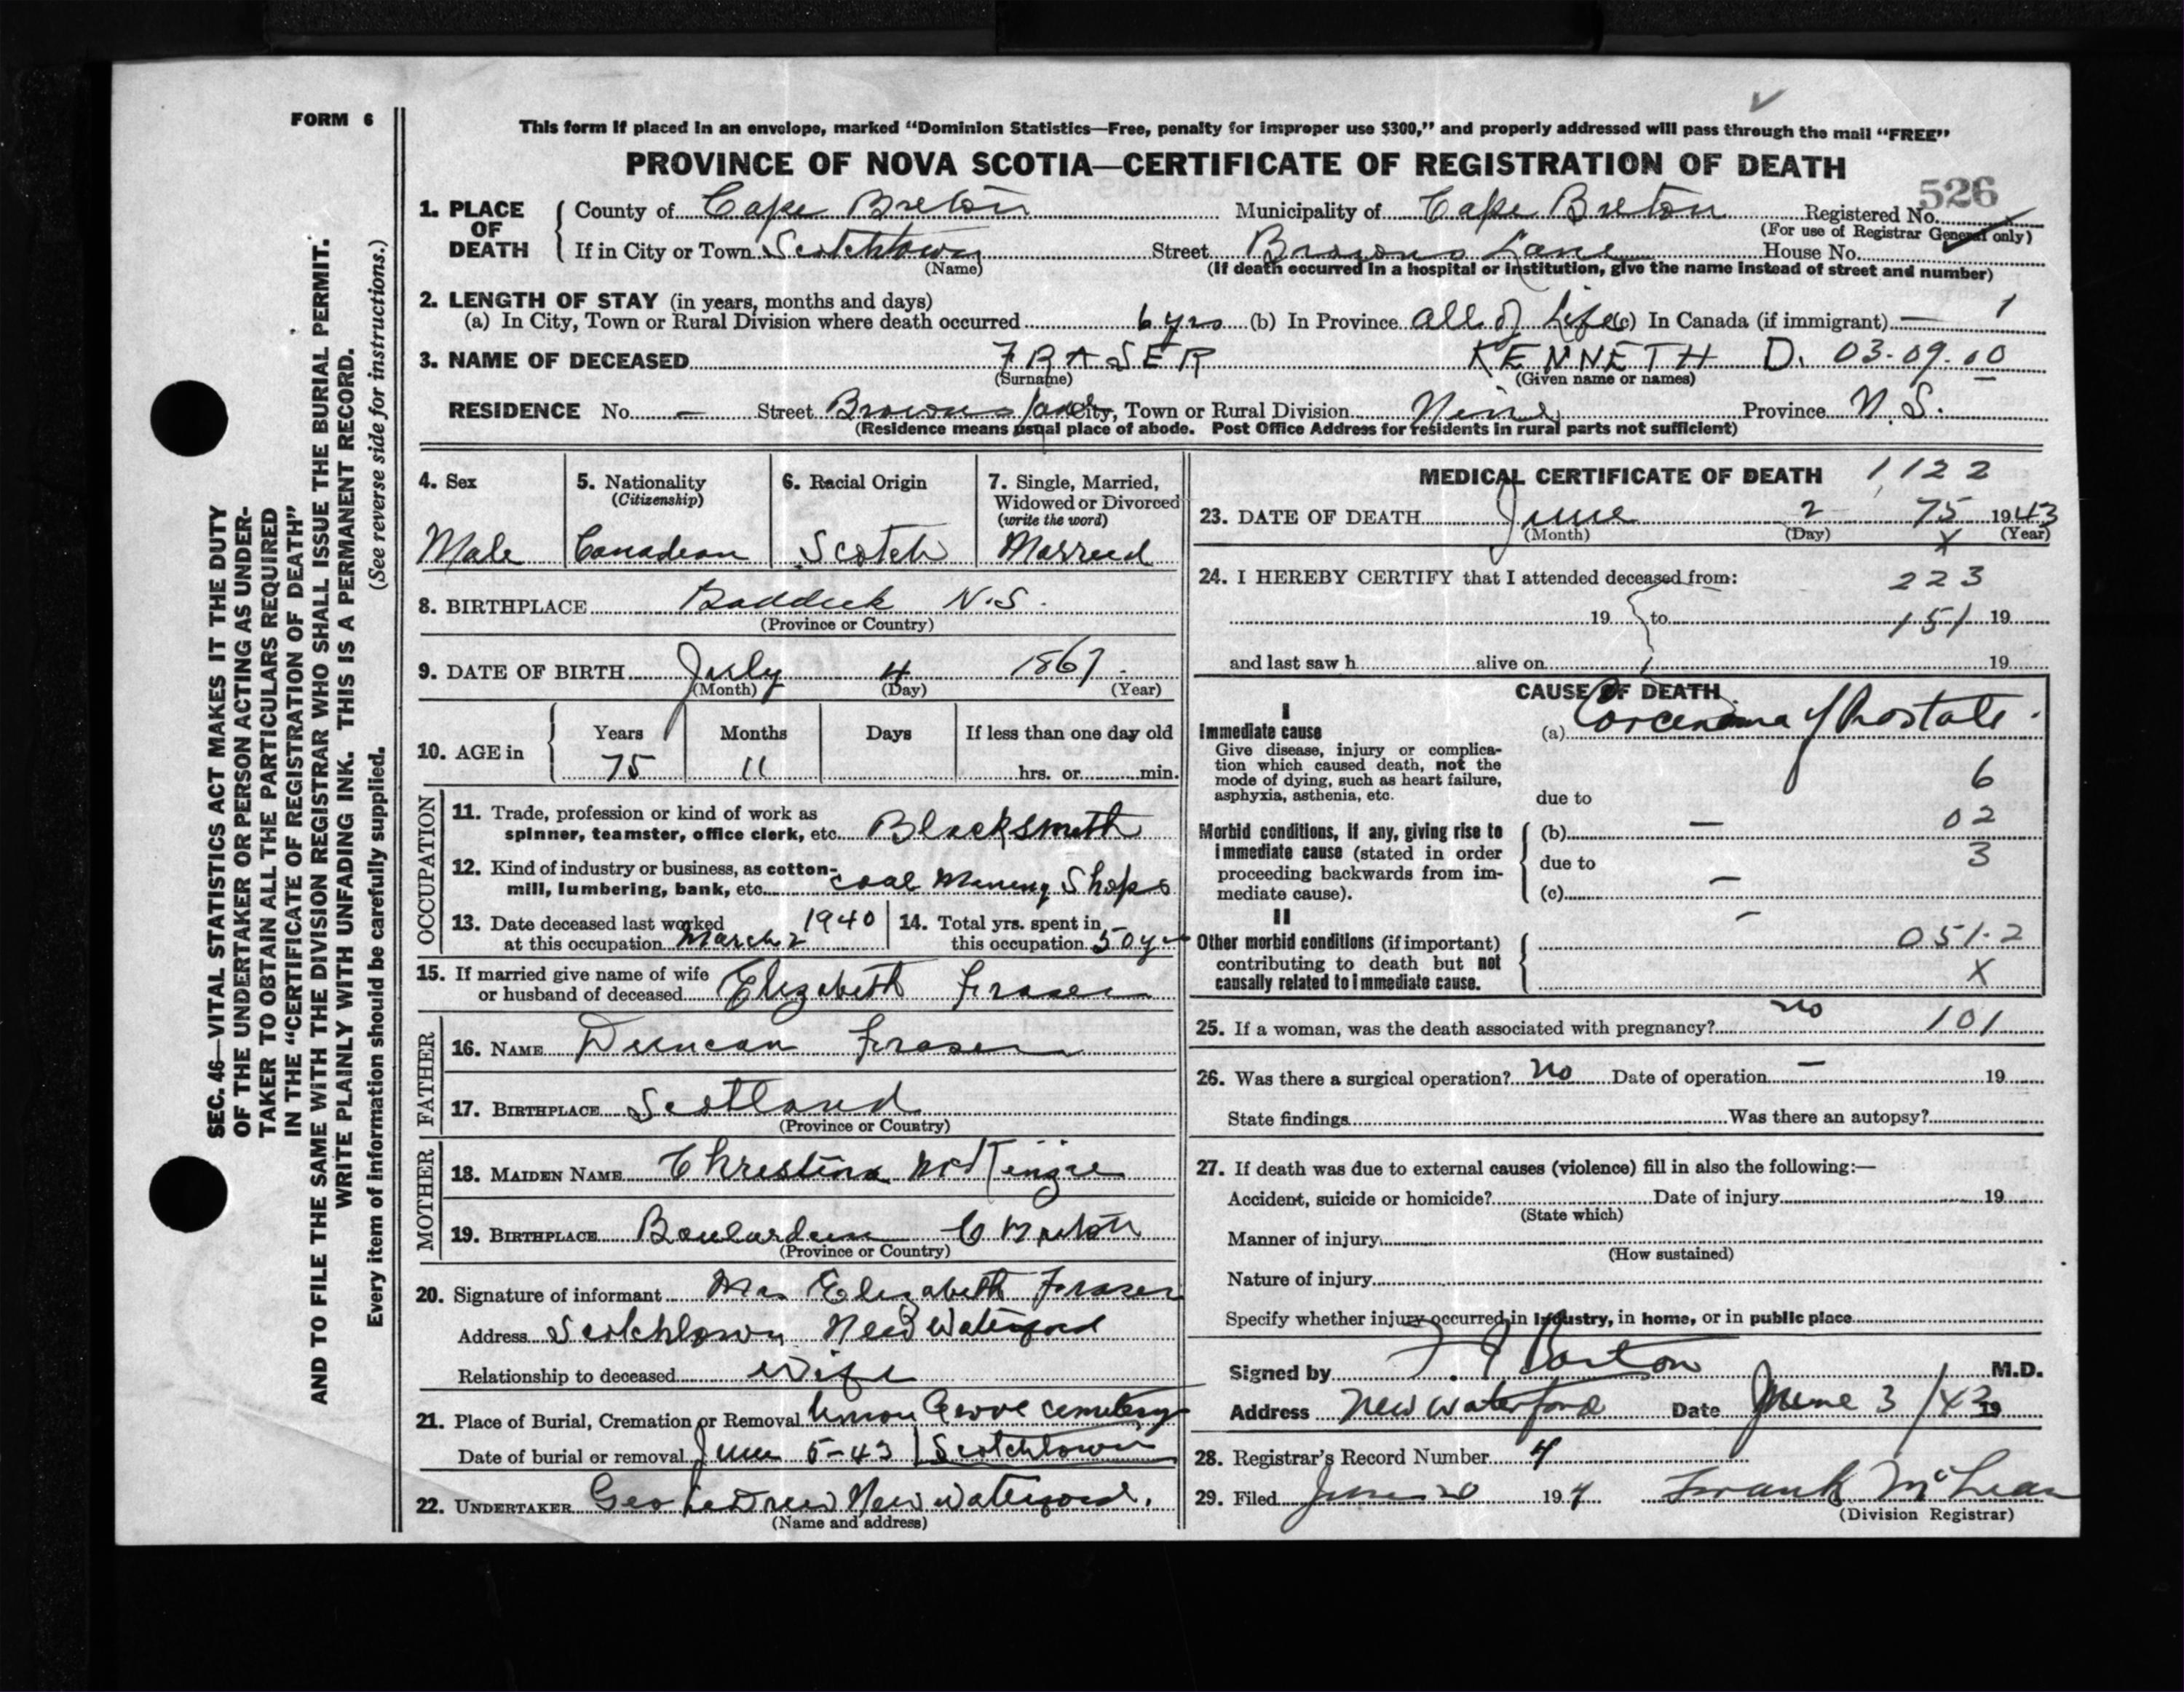 FORM 6
This form if placed in an envelope, marked “Dominion Statistics—Free, penalty for improper use $300,” and properly addressed will pass through the mail “FREE”
PROVINCE OF NOVA SCOTIA—CERTIFICATE OF REGISTRATION OF DEATH
526
1. PLACE OF DEATH { County of Cape Breton Municipality of Cape Breton Registered No.
(For use of Registrar General only)
If in City or Town Scotchtown Street Browns Lane House No.
(Name) (If death occurred in a hospital or institution, give the name instead of street and number)
2. LENGTH OF STAY (in years, months and days)
(a) In City, Town or Rural Division where death occurred 6 yrs (b) In Province all of Life (c) In Canada (if immigrant) — 1
3. NAME OF DECEASED FRASER KENNETH D. 03.09.00
(Surname) (Given name or names)
RESIDENCE No. — Street Browns Lane City, Town or Rural Division Province N.S.
(Residence means usual place of abode. Post Office Address for residents in rural parts not sufficient)
4. Sex 5. Nationality 6. Racial Origin 7. Single, Married,
(Citizenship) Widowed or Divorced
(write the word)
Male Canadian Scotch Married
8. BIRTHPLACE Baddeck N.S.
(Province or Country)
9. DATE OF BIRTH July 4 1867
(Month) (Day) (Year)
10. AGE in { Years Months Days If less than one day old
75 11 hrs. or min.
OCCUPATION
11. Trade, profession or kind of work as
spinner, teamster, office clerk, etc. Blacksmith
12. Kind of industry or business, as cotton-
mill, lumbering, bank, etc. Coal Mining Shops
13. Date deceased last worked 1940 14. Total yrs. spent in
at this occupation March 2 this occupation 50 yr
15. If married give name of wife
or husband of deceased Elizabeth Fraser
FATHER
16. NAME Duncan Fraser
17. BIRTHPLACE Scotland
(Province or Country)
MOTHER
18. MAIDEN NAME Christina McKinzie
19. BIRTHPLACE Boularderie C Breton
(Province or Country)
20. Signature of informant Mrs Elizabeth Fraser
Address Scotchtown New Waterford
Relationship to deceased Wife
21. Place of Burial, Cremation or Removal Union Grove Cemetery
Date of burial or removal June 5-43 Scotchtown
22. UNDERTAKER Geo New Waterford.
(Name and address)
MEDICAL CERTIFICATE OF DEATH 1122
23. DATE OF DEATH June 2 75 1943
(Month) (Day) X (Year)
24. I HEREBY CERTIFY that I attended deceased from: 223
19 to 151 19
and last saw h alive on 19
CAUSE OF DEATH
I
Immediate cause (a) Carcenoma of Prostate.
Give disease, injury or complica-
tion which caused death, not the
mode of dying, such as heart failure, 6
asphyxia, asthenia, etc. due to
Morbid conditions, if any, giving rise to { (b) — 02
immediate cause (stated in order due to 3
proceeding backwards from im-
mediate cause). (c) —
II —
Other morbid conditions (if important) { 051.2
contributing to death but not
causally related to immediate cause. X
25. If a woman, was the death associated with pregnancy? no 101
26. Was there a surgical operation? No Date of operation — 19
State findings Was there an autopsy?
27. If death was due to external causes (violence) fill in also the following:—
Accident, suicide or homicide? Date of injury 19
(State which)
Manner of injury
(How sustained)
Nature of injury
Specify whether injury occurred in industry, in home, or in public place
Signed by Barton M.D.
Address New Waterford Date June 3/43 19
28. Registrar's Record Number 4
29. Filed June 20 194 Frank McLean
(Division Registrar)
SEC. 46—VITAL STATISTICS ACT MAKES IT THE DUTY
OF THE UNDERTAKER OR PERSON ACTING AS UNDER-
TAKER TO OBTAIN ALL THE PARTICULARS REQUIRED
IN THE “CERTIFICATE OF REGISTRATION OF DEATH”
AND TO FILE THE SAME WITH THE DIVISION REGISTRAR WHO SHALL ISSUE THE BURIAL PERMIT.
WRITE PLAINLY WITH UNFADING INK. THIS IS A PERMANENT RECORD.
Every item of information should be carefully supplied. (See reverse side for instructions.)